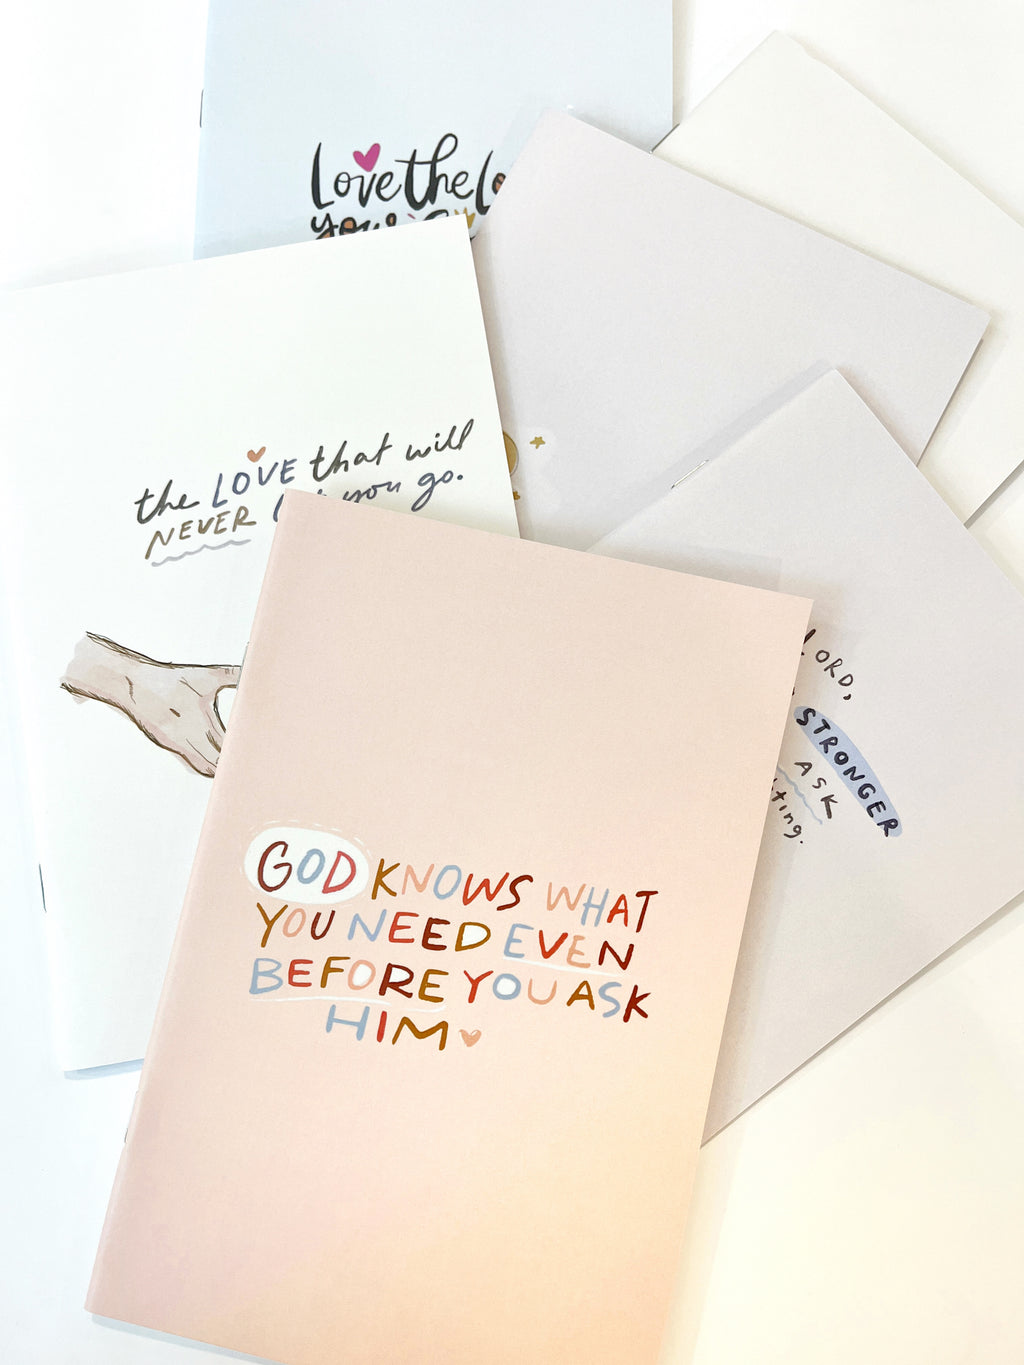 Love the
the LOVE that will
NEVER you go.
LORD,
STRONGER
ASK
GOD KNOWS WHAT
YOU NEED EVEN
BEFORE YOU ASK
HIM